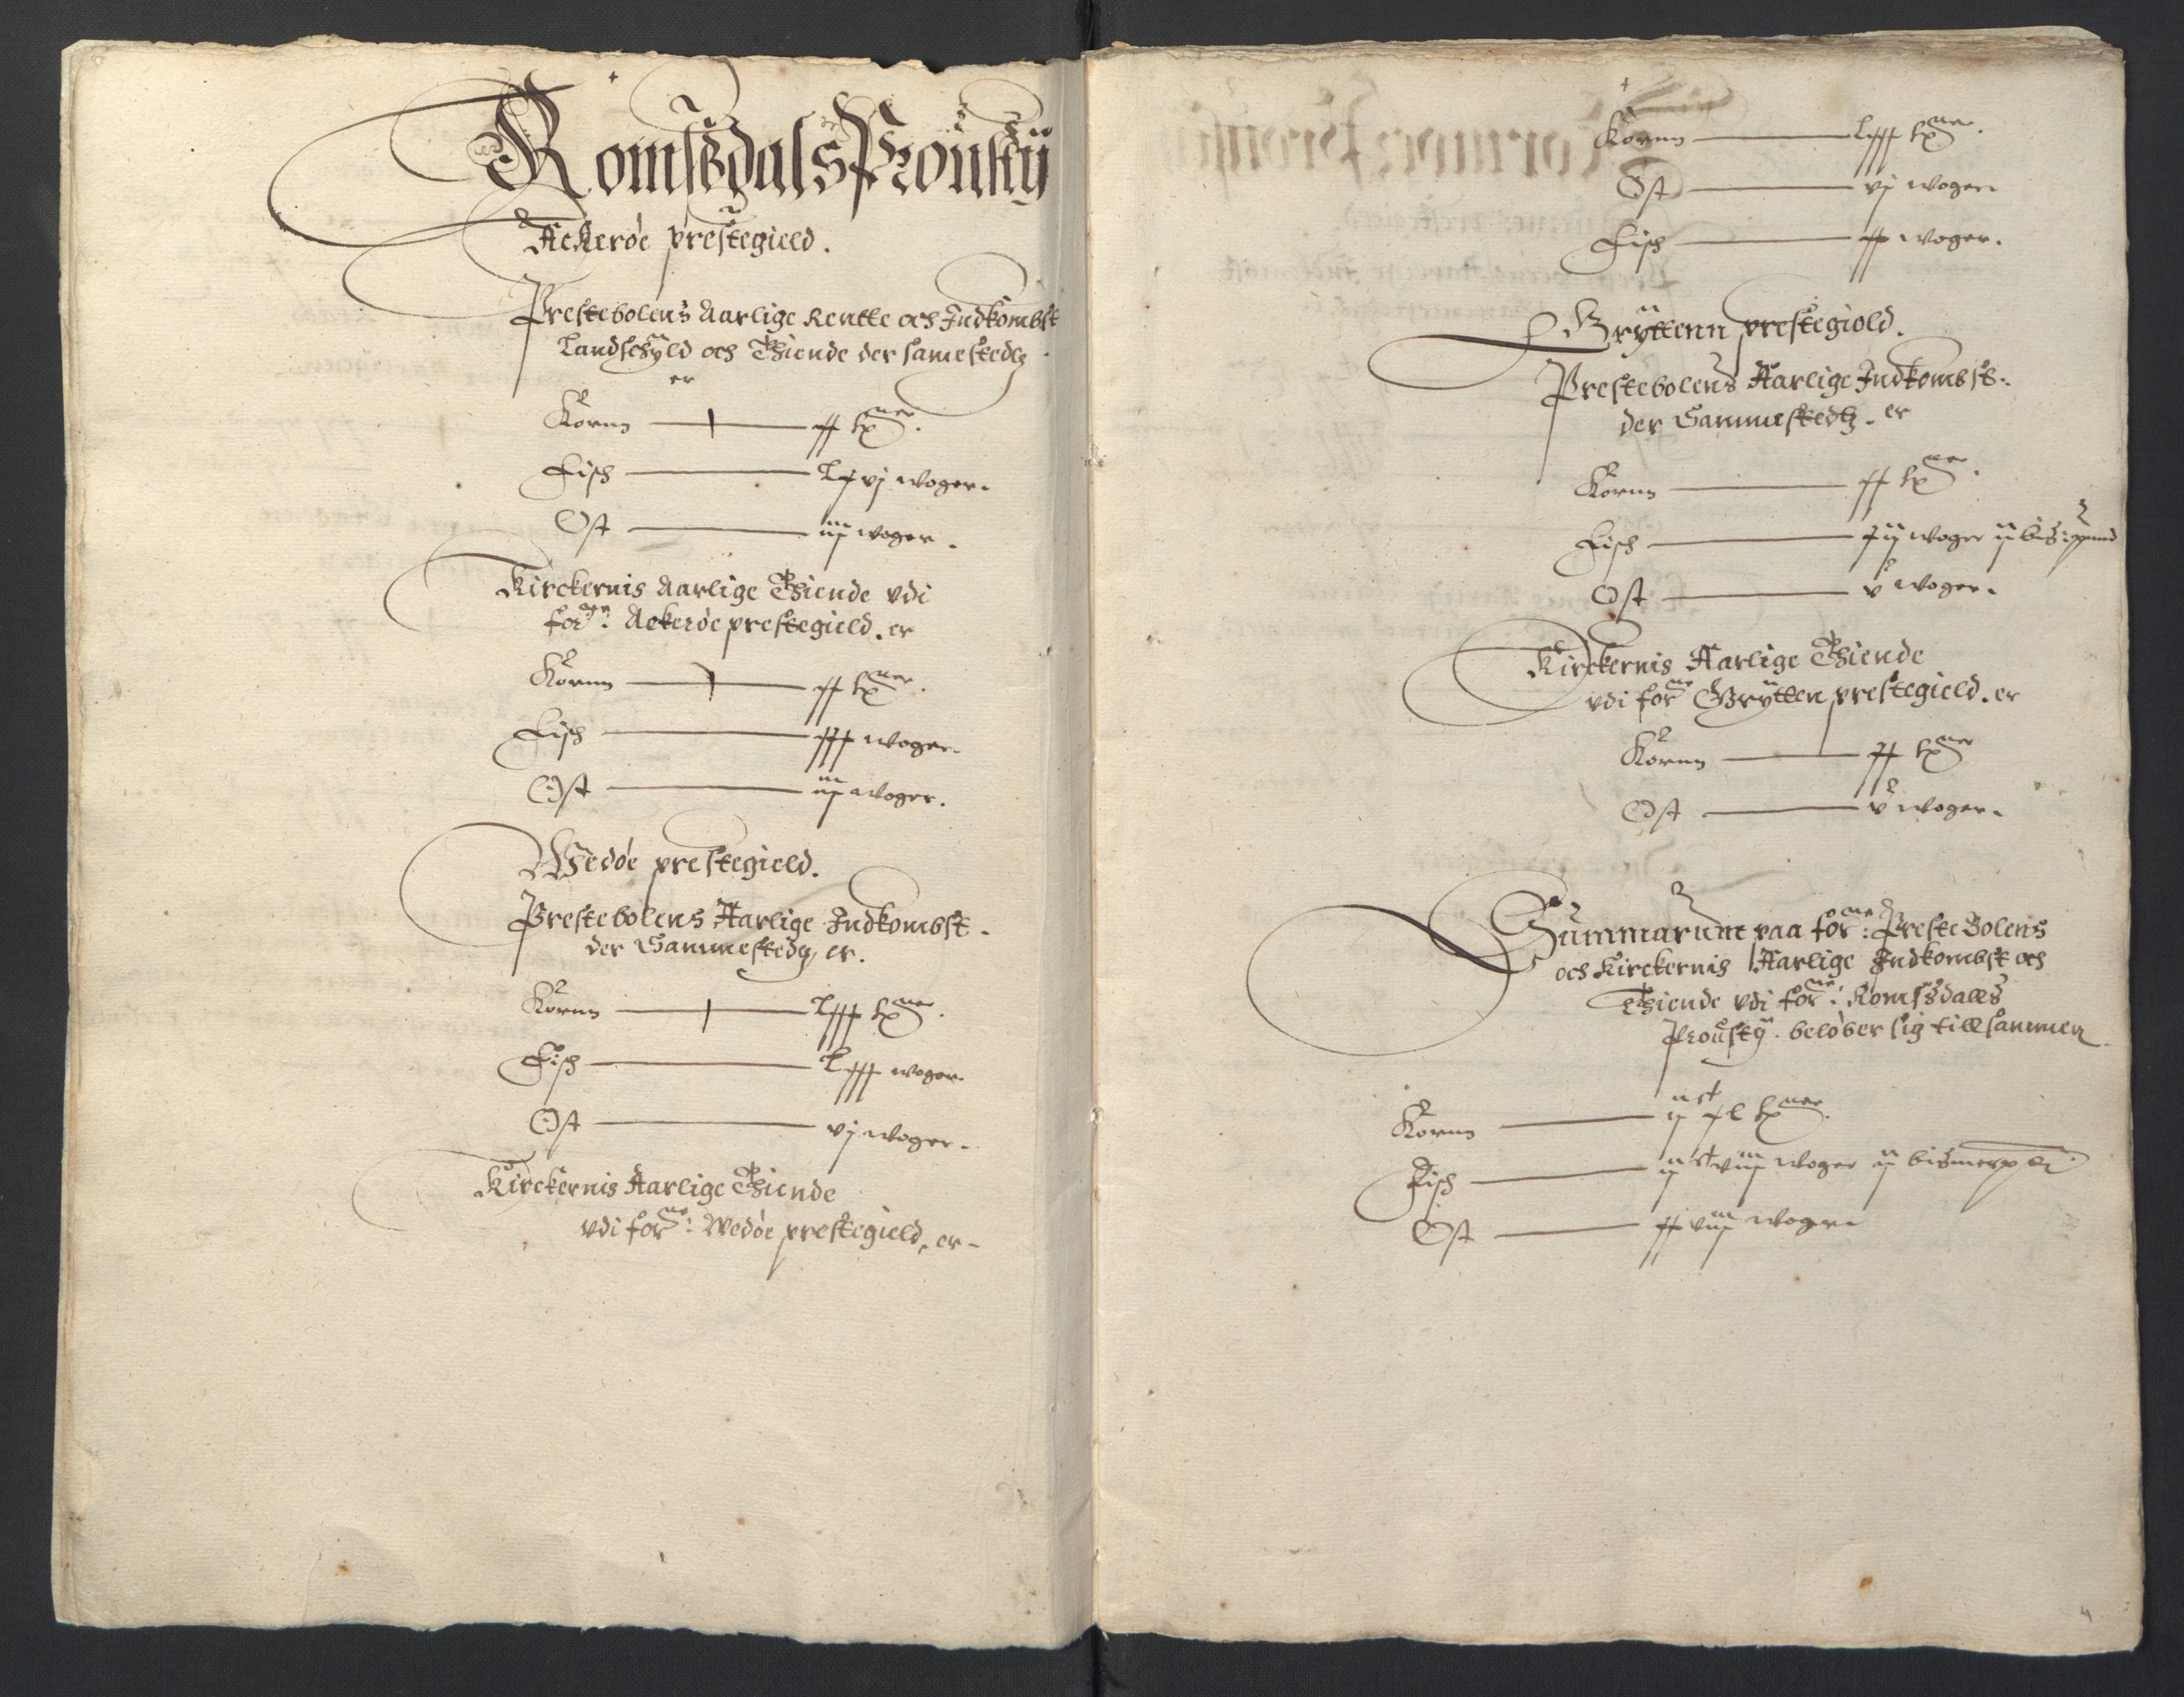 Romszdals Proustij
Ackerøe prestegield.
Prestebolens Aarlige Rentte och Indkombst
Landschyld och Thiende der samestedtz
er
Kornn — xx tpner.
Fisch — Lxvj woger.
Ost — iij woger.
Kirckernis Aarlige Thiende vdi
forne: Ackerøe prestegield. er
Kornn — xx tpner.
Fisch — xxx woger.
Ost — iij woger.
Wedøe prestegield.
Prestebolens Aarlige Indkombst.
der Sammestedtz er.
Kornn — Lxxx tpner.
Fisch — Lxxx woger.
Ost — vj woger.
Kirckernis Aarlige Thiende
vdi forne: Wedøe prestegield, er
Kornn — Lxxx tpner.
Ost — vj woger
Fisch — xx woger.
Gryttenn prestegiold.
Prestebolens Aarlige Indkombst.
der Sammestedtz. er
Kornn — xx tpner.
Fisch — xij woger ij bis: pund
Ost — v woger.
Kirckernis Aarlige Thiende
vdi forne Grytten prestegield. er
Kornn — xx tpner
Ost — v woger.
Summarum paa forne: Preste Bolens
och Kirckernis Aarlige Indkombst och
Thiende vdi forne: Romssdalls
Proustij. beløber sig till sammen
Kornn — ijct xl tpner.
Fisch — ijct viij woger ij bismerp
Ost — xxviij woger